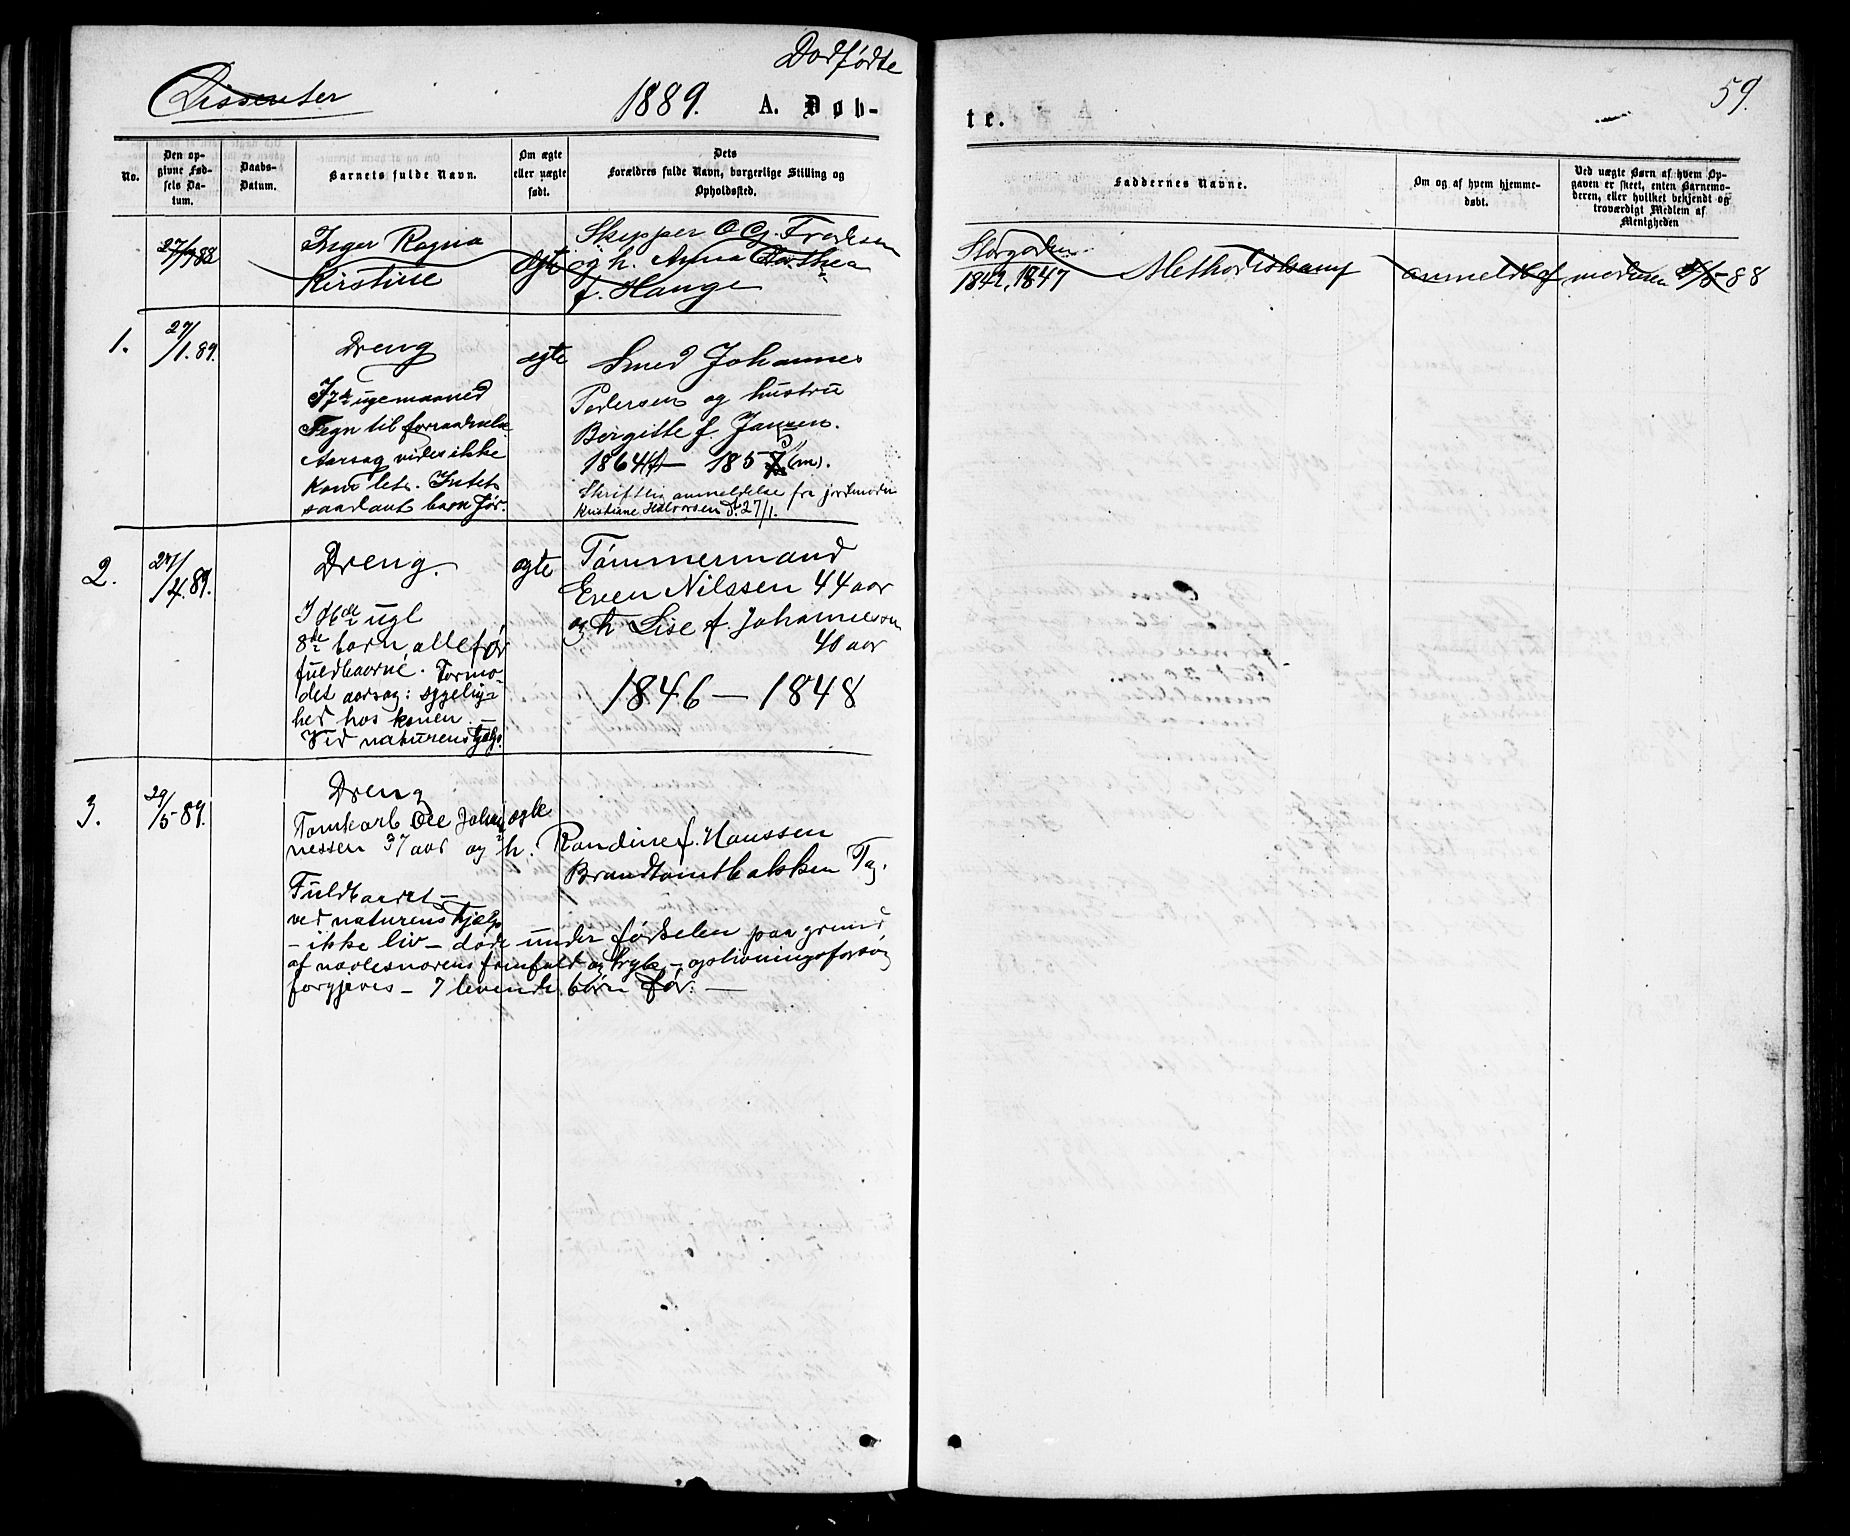 Dodfødte
Dissenter
1889.
A. Døb-
te.
59.
No.
Den op-
givne Fød-
sels Da-
tum.
Daabs-
Datum.
Barnets fulde Navn.
Om ægte
eller uægte
født.
Dets
Forældres fulde Navn, borgerlige Stilling og
Opholdssted.
Faddernes Navne.
Om og af hvem hjemme-
døbt.
Ved uægte Børn af hvem Op-
gaven er skeet, enten Barnemo-
deren, eller hvilket bekjendt og
troværdigt Medlem af
Menigheden
Inger Ragna
Kirstine
ægte
Skipper O. G. Fredksen
og h. Anna Dorthea
f. Hauge
Storgaden
1842, 1847
Methodistsamf
anmeldt af
moderen
1.
27/1.89.
Dreng
I 7de ugemaaned
Tegn til forraadnelse
Aarsag vides ikke
Kom let. Intet
saadant barn før.
ægte
Smed Johannes
Pedersen og hustru
Birgitte f. Jansen.
1864 – 185 (m).
Skriftlig anmeldelse fra jordmoder
Kristiane Halvorsen d. 27/1.
2.
27/4.89.
Dreng.
8de barn, alle før
fuldbaarne. Formo-
det aarsag: sygelig-
hed hos konen.
Ved naturens hjælp.
ægte
Tømmermand
Even Nilssen 44 aar
og h. Lise f. Johannesen
40 aar
1846 – 1848
3.
29/5-89.
Dreng
ægte
Tomtearb Ole Johan
nessen 37 aar og h. Randine f. Hanssen
Brandtomtbakken
Fuldbaaret –
ved naturens hjælp
– ikke liv – døde under fødselen paa grund
af navlesnorens fremfald og tryk – oplivningsforsøg
forgjeves – 7 levende børn før. –